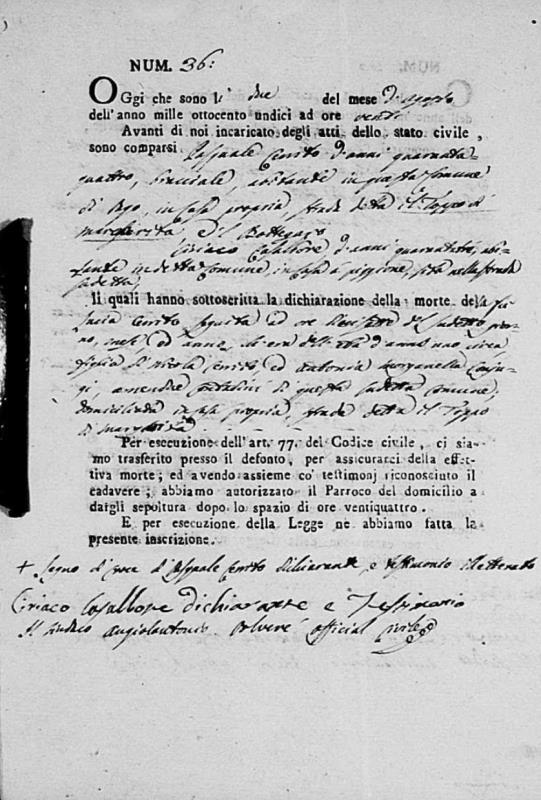 NUM. 36:
OGgi che sono li due del mese d'Agosto
dell'anno mille ottocento undici ad ore venti
Avanti di noi incaricato degli atti dello stato civile,
sono comparsi Pasquale Cerrito d'anni quaranta=
quattro, bracciale, abitante in questa Comune
di in Casa propria, strada detta il Toppo di
margherita, e il Bottegaro
Ciriaco Casalbore d'anni quarantatre, abi-
tante in detta Comune in Casa a piggione, sita nella strada
sudetta,
li quali hanno sottoscritta la dichiarazione della morte della
Cerrito seguita ad ore diecisette del sudetto gior-
no, mese, ed anno, di età d'anni uno circa
figlia di Nicola Cerrito ed Antonia Conju-
gi, amendue di questa sudetta Comune,
domiciliata in Casa propria, strada detta il Toppo
di margherita
Per esecuzione dell'art. 77. del Codice civile, ci sia-
mo trasferito presso il defonto, per assicurarci della effet-
tiva morte; ed avendo assieme co' testimonj riconosciuto il
cadavere; abbiamo autorizzato il Parroco del domicilio a
dargli sepoltura dopo lo spazio di ore ventiquattro.
E per esecuzione della Legge ne abbiamo fatta la
presente inscrizione.
+ Segno di Croce di Pasquale Cerrito dichiarante, e testimonio illetterato
Ciriaco Casalbore dichiarante e Testimonio
Il Sindaco Angiolantonio official Civile